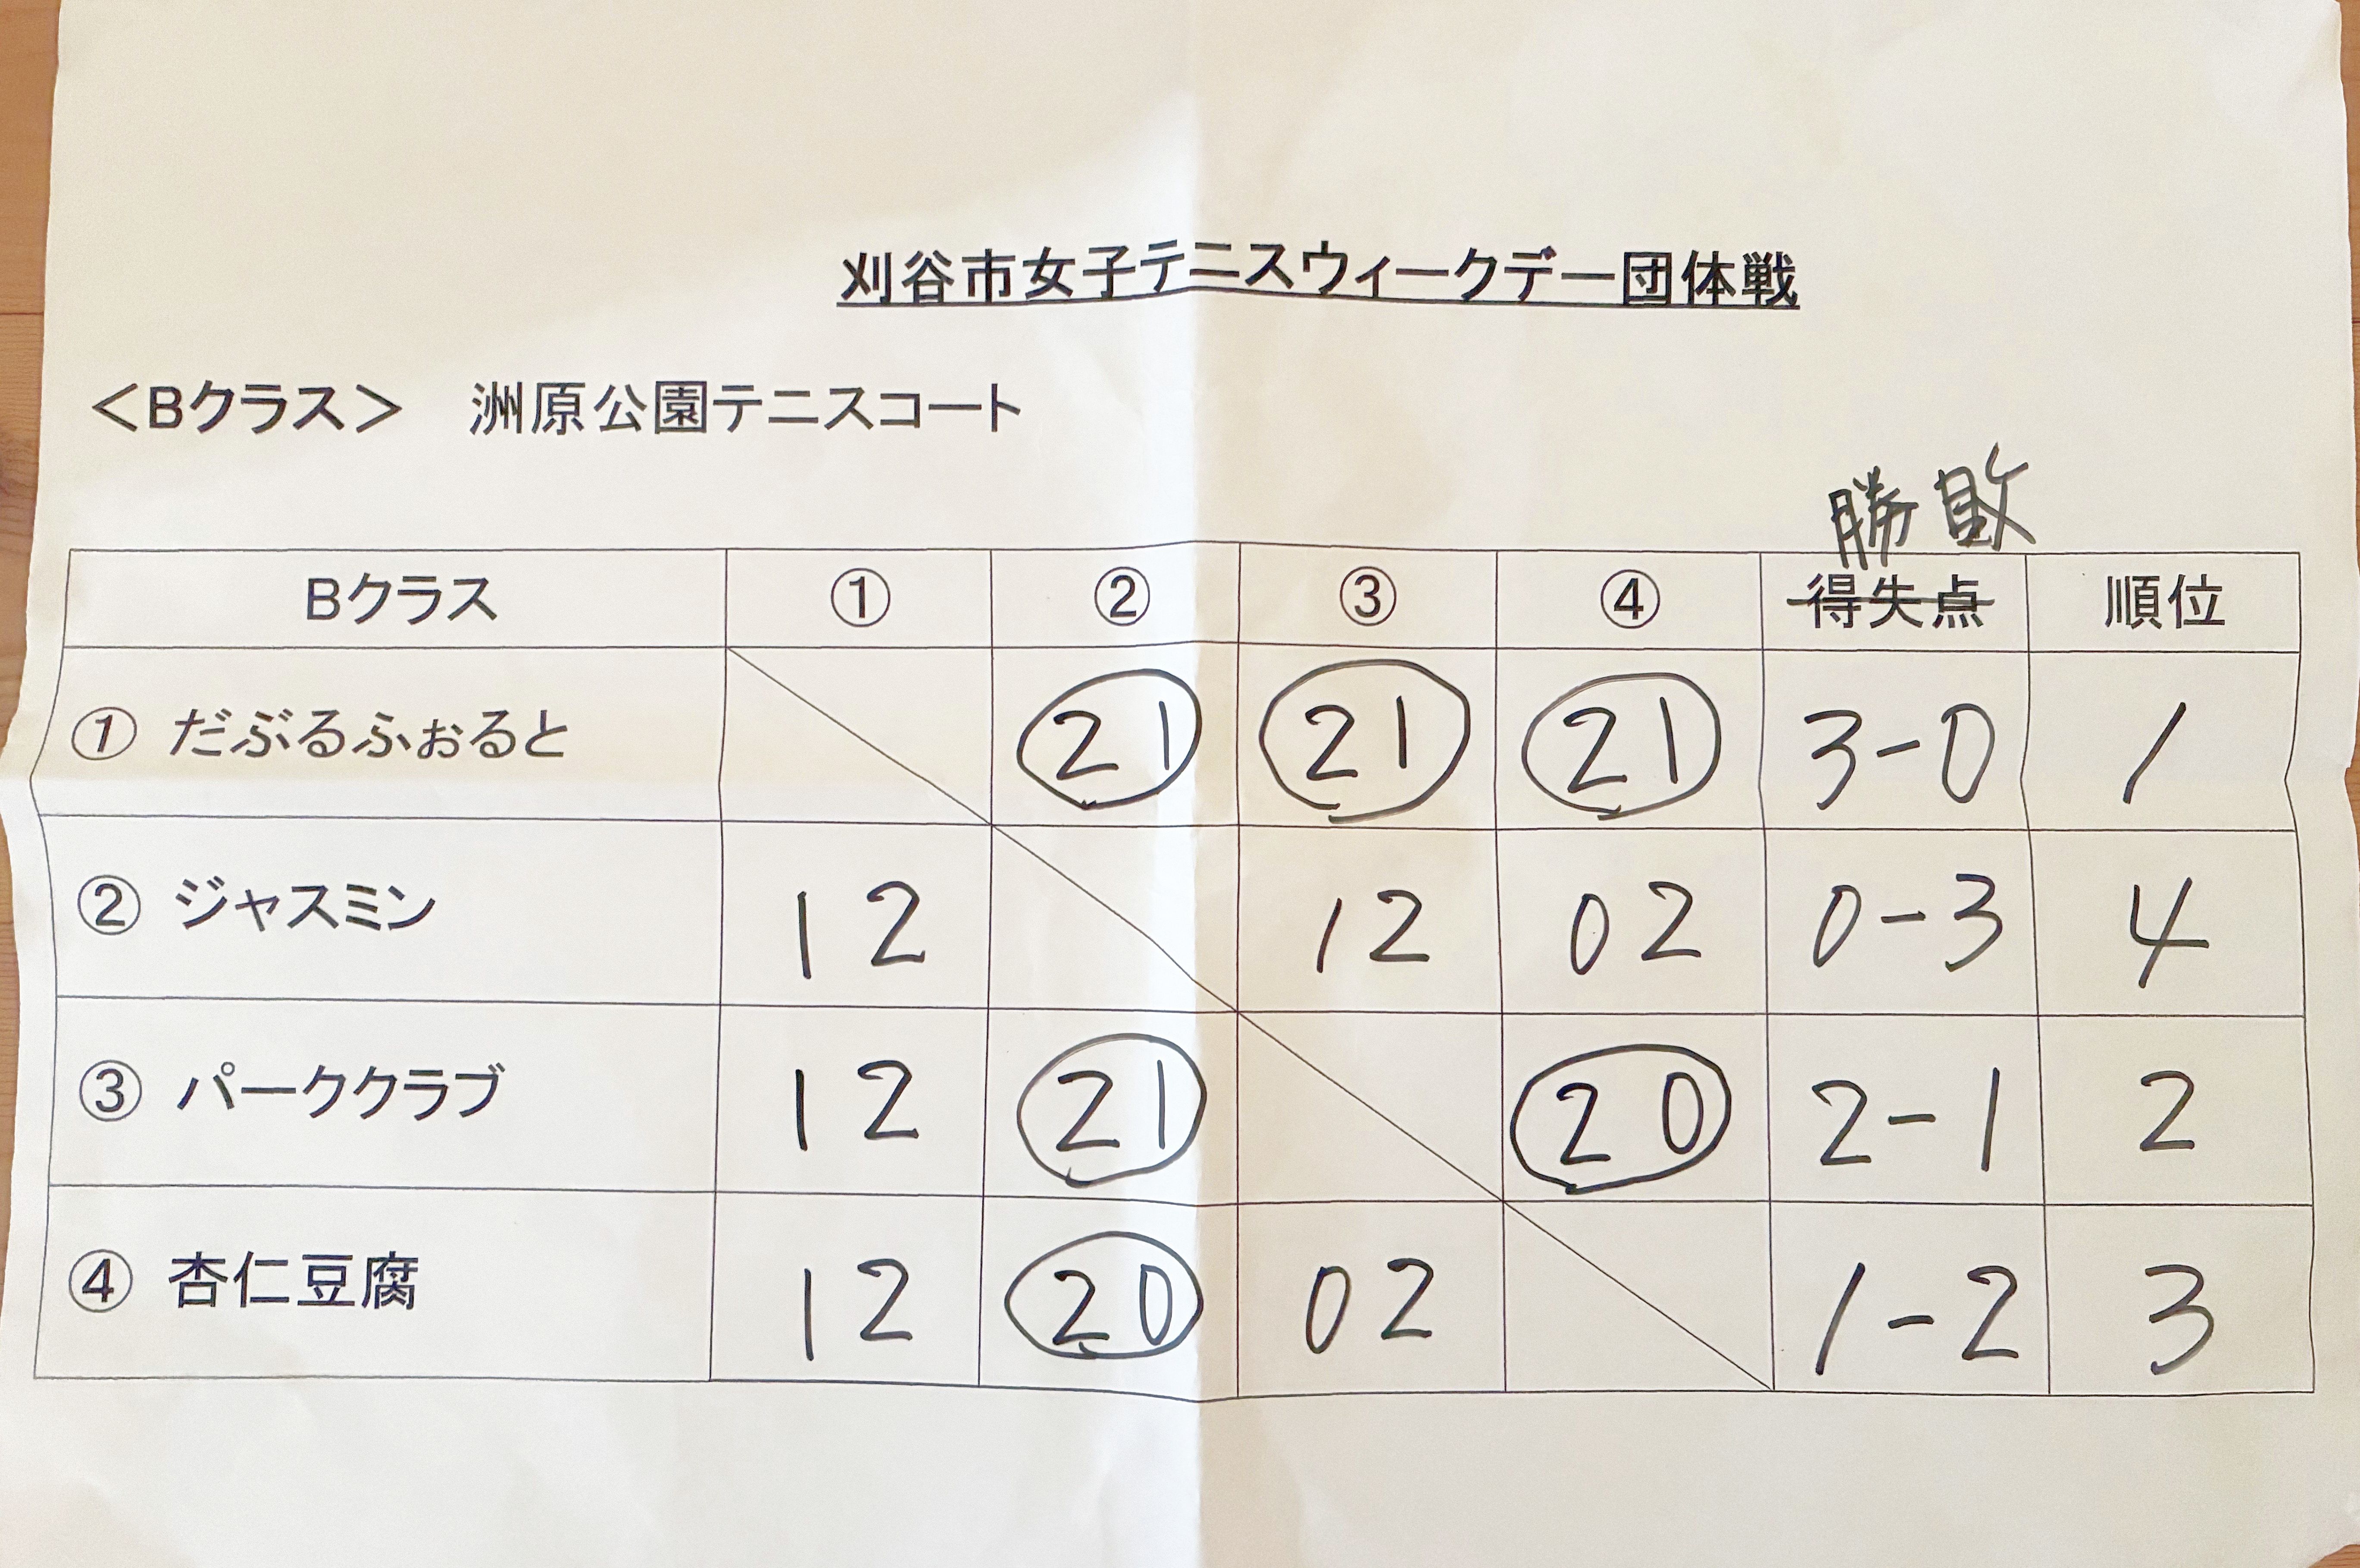 刈谷市女子テニスウィークデー団体戦
＜Bクラス＞ 洲原公園テニスコート
勝敗
Bクラス ① ② ③ ④ 得失点 順位
① だぶるふぉると 21 21 21 3-0 1
② ジャスミン 12 12 02 0-3 4
③ パーククラブ 12 21 20 2-1 2
④ 杏仁豆腐 12 20 02 1-2 3